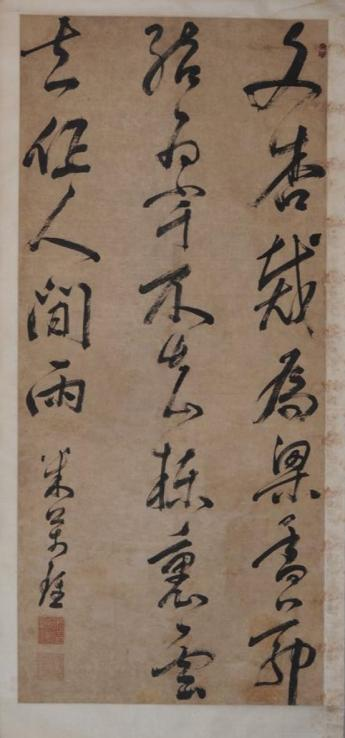 文杏裁為梁香茅
結為宇不知棟裏雲
去作人間雨
米萬鍾